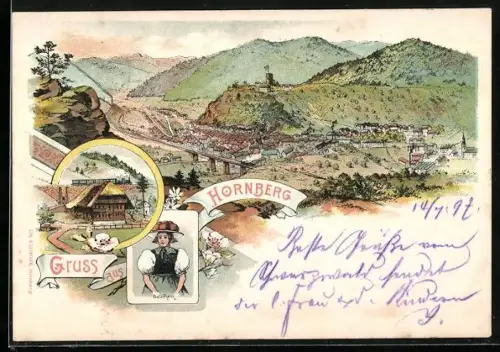 HORNBERG
Gruss aus
14/7. 97.
Beste Grüße vom
Schwarzwald sendet
der l. Frau u. d. Kindern